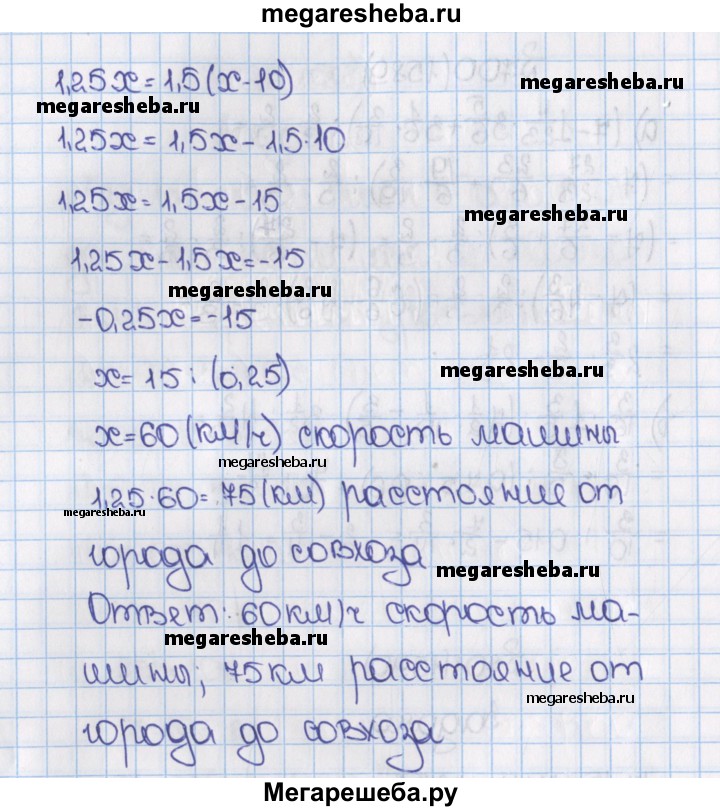 megaresheba.ru
1,25x = 1,5(x-10)
megaresheba.ru
megaresheba.ru
1,25x = 1,5x - 1,5·10
1,25x = 1,5x - 15
megaresheba.ru
1,25x - 1,5x = -15
megaresheba.ru
-0,25x = -15
x = 15 : (0,25)
megaresheba.ru
x = 60 (км/ч) скорость машины
megaresheba.ru
1,25·60 = 75 (км) расстояние от
megaresheba.ru
города до совхоза
megaresheba.ru
Ответ: 60 км/ч скорость ма-
megaresheba.ru
шины; 75 км расстояние от
megaresheba.ru
города до совхоза
Мегарешеба.ру